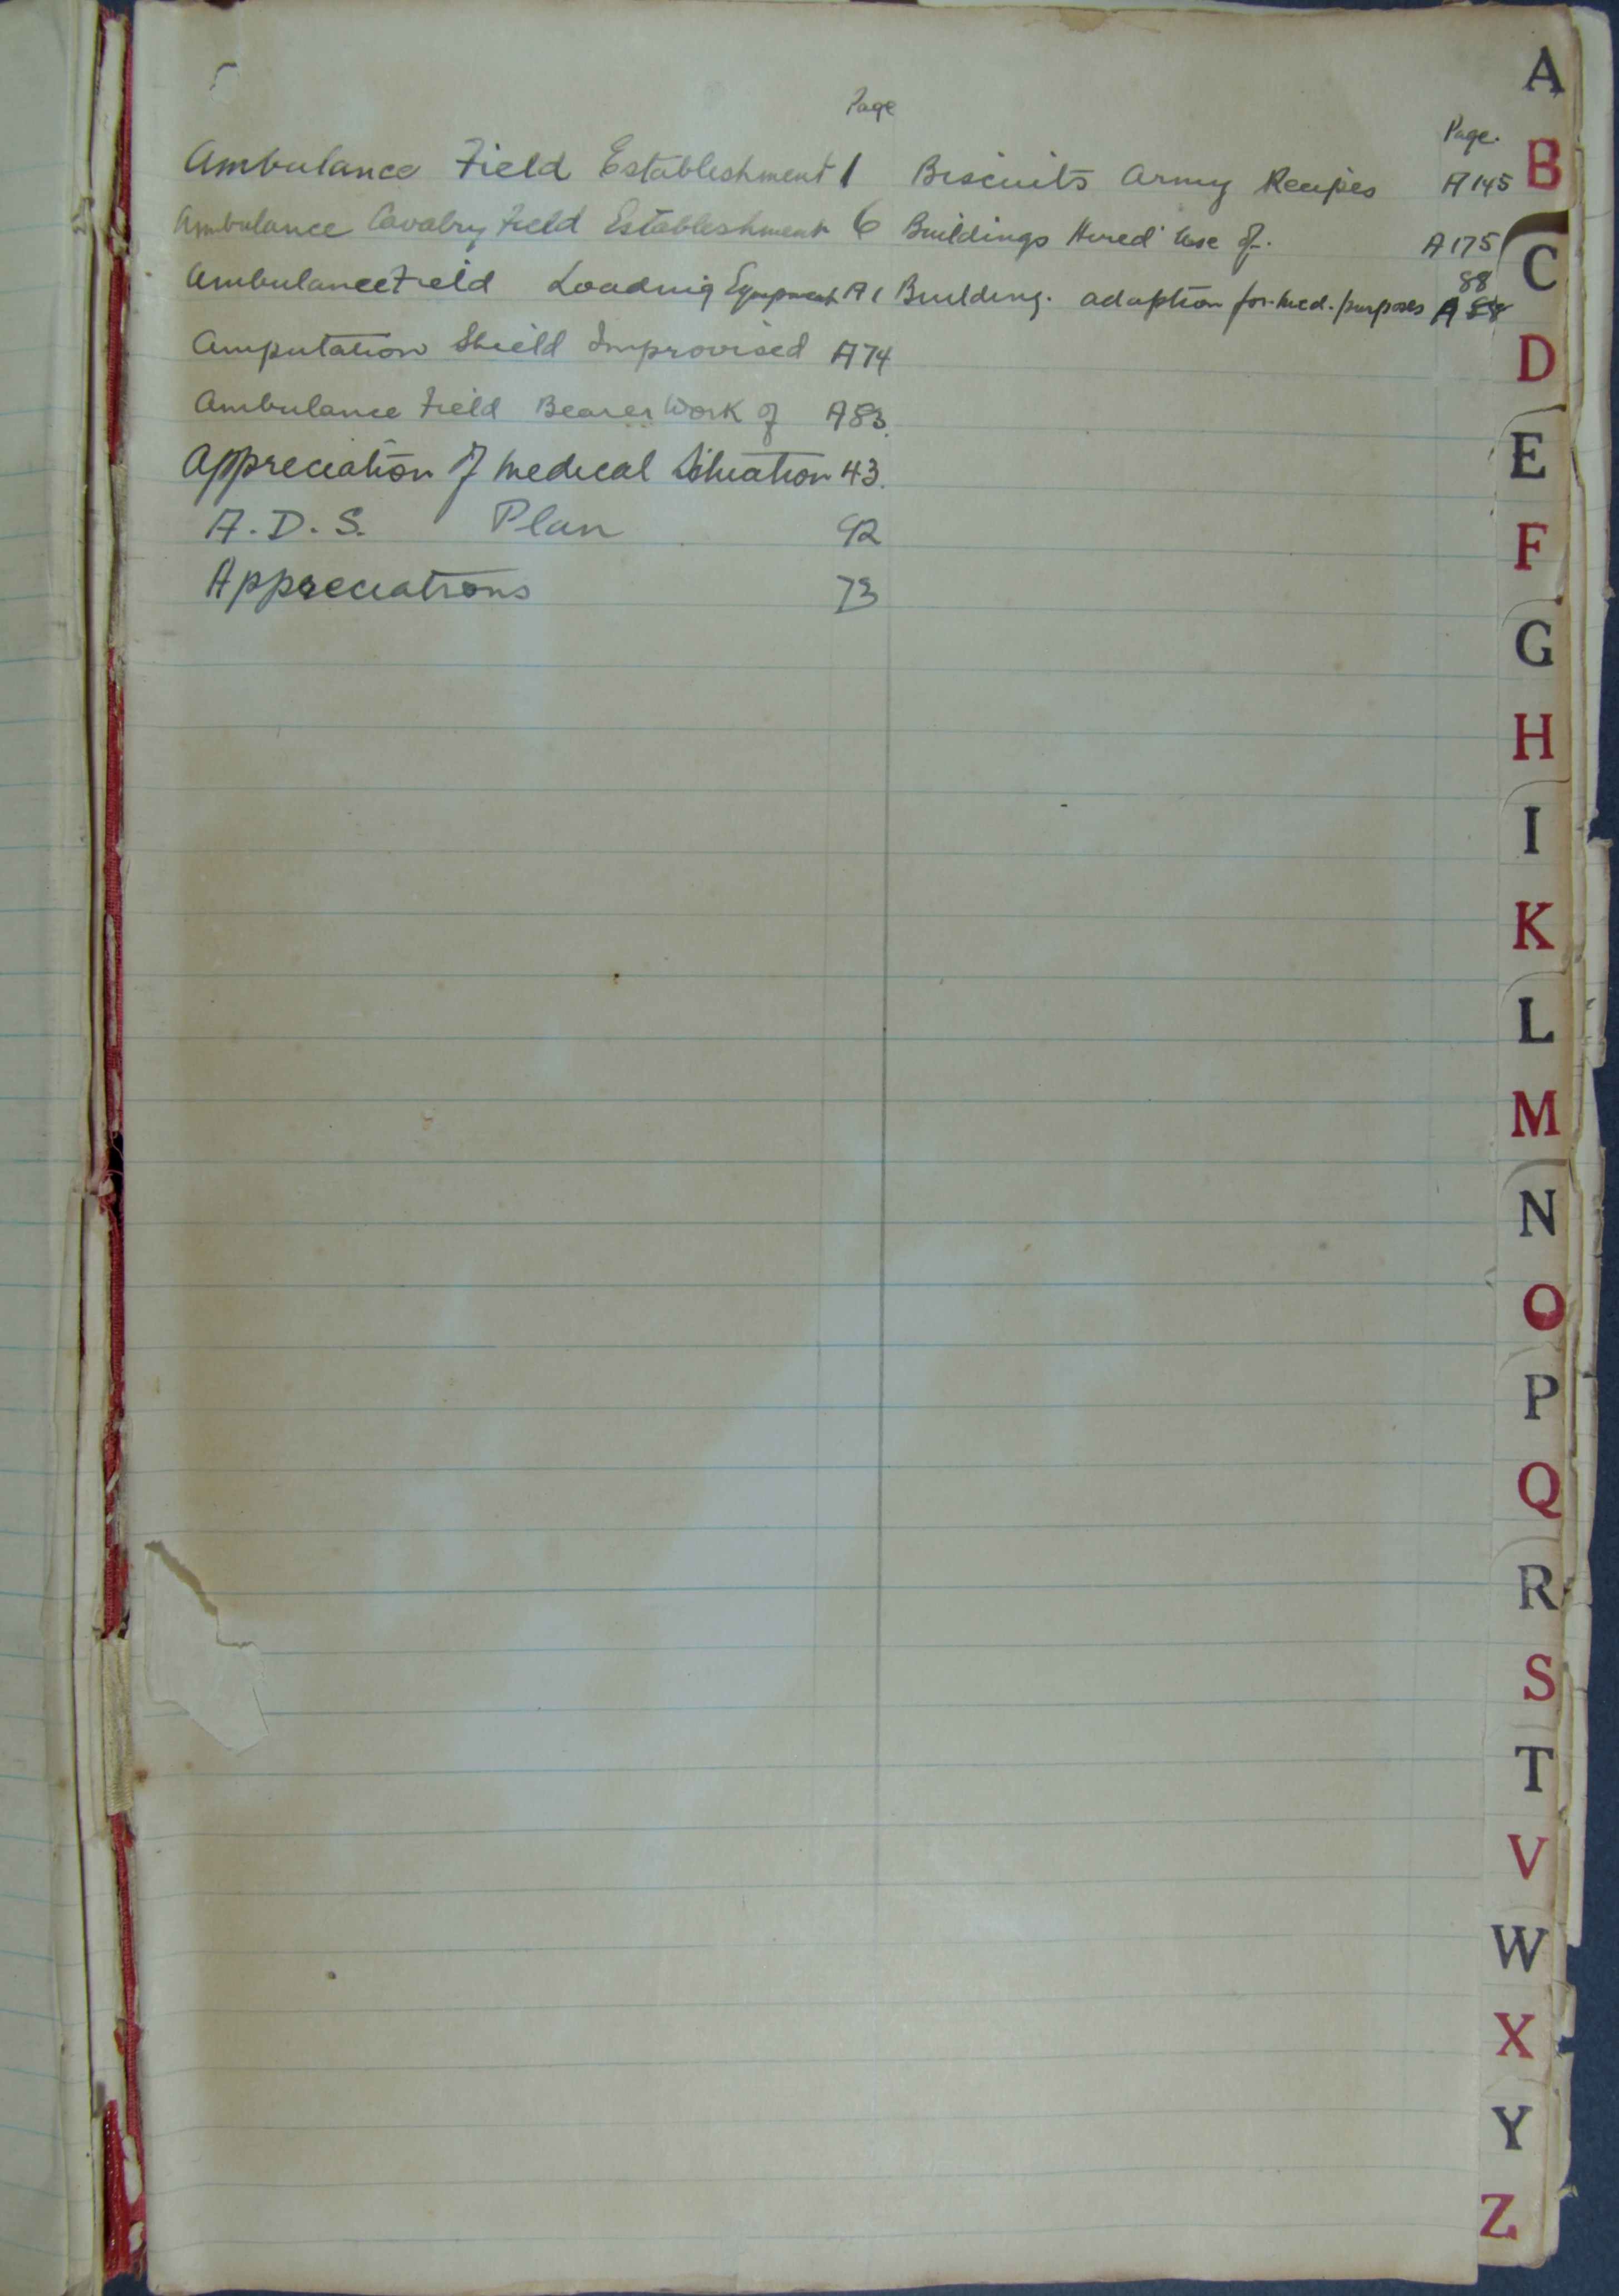 Page
Ambulance Field Establishment 1
Ambulance Cavalry Field Establishment 6
Ambulance Field Loading Equipment A1
Amputation Shield Improvised A74
Ambulance Field Bearer Work of A83.
Appreciation of Medical Situation 43.
A.D.S. Plan 92
Appreciations 73
Page.
Biscuits Army Recipes A145
Buildings Hired Use of. A175
88
Building. adaption for. med. purposes A
A
B
C
D
E
F
G
H
I
K
L
M
N
O
P
Q
R
S
T
V
W
X
Y
Z